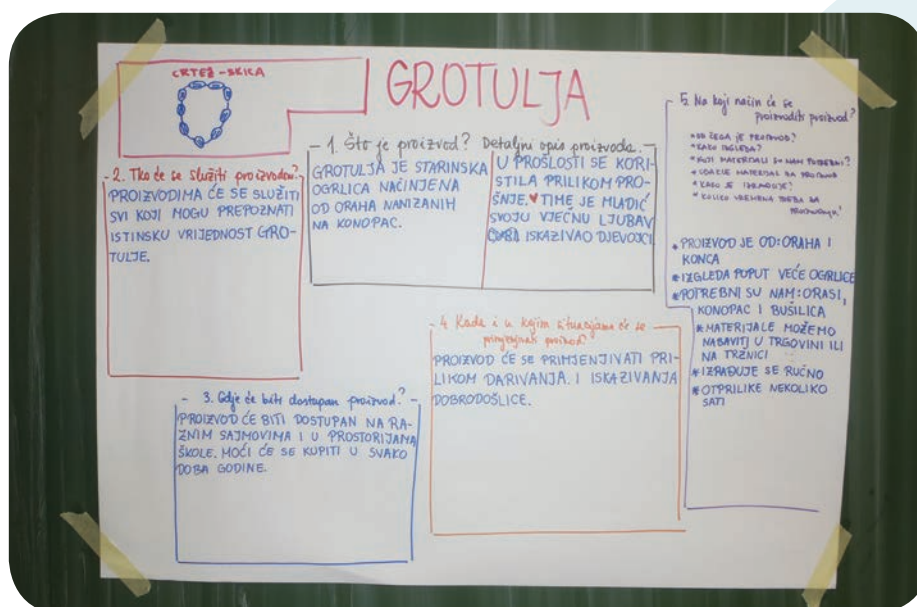 CRTEŽ-SKICA
GROTULJA
1. Što je proizvod? Detaljni opis proizvoda.
GROTULJA JE STARINSKA
OGRLICA NAČINJENA
OD ORAHA NANIZANIH
NA KONOPAC.
U PROŠLOSTI SE KORI-
STILA PRILIKOM PRO-
ŠNJE. ♥ TIME JE MLADIĆ
SVOJU VJEČNU LJUBAV
ISKAZIVAO DJEVOJCI
2. Tko će se služiti proizvodom?
PROIZVODIMA ĆE SE SLUŽITI
SVI KOJI MOGU PREPOZNATI
ISTINSKU VRIJEDNOST GRO-
TULJE.
3. Gdje će biti dostupan proizvod?
PROIZVOD ĆE BITI DOSTUPAN NA RA-
ZNIM SAJMOVIMA I U PROSTORIJAMA
ŠKOLE. MOĆI ĆE SE KUPITI U SVAKO
DOBA GODINE.
4. Kada i u kojim situacijama će se
primjenjivati proizvod?
PROIZVOD ĆE SE PRIMJENJIVATI PRI-
LIKOM DARIVANJA. I ISKAZIVANJA
DOBRODOŠLICE.
5. Na koji način će se
proizvoditi proizvod?
* OD ČEGA JE PROIZVOD?
* KAKO IZGLEDA?
* KOJI MATERIJALI SU NAM POTREBNI?
* ODAKLE MATERIJAL ZA PROIZVOD
* KAKO SE IZRAĐUJE?
* KOLIKO VREMENA TREBA ZA
* PROIZVOD JE OD: ORAHA I
KONCA
* IZGLEDA POPUT VEĆE OGRLICE
* POTREBNI SU NAM: ORASI,
KONOPAC I BUŠILICA
* MATERIJALE MOŽEMO
NABAVITI U TRGOVINI ILI
NA TRŽNICI
* IZRAĐUJE SE RUČNO
* OTPRILIKE NEKOLIKO
SATI